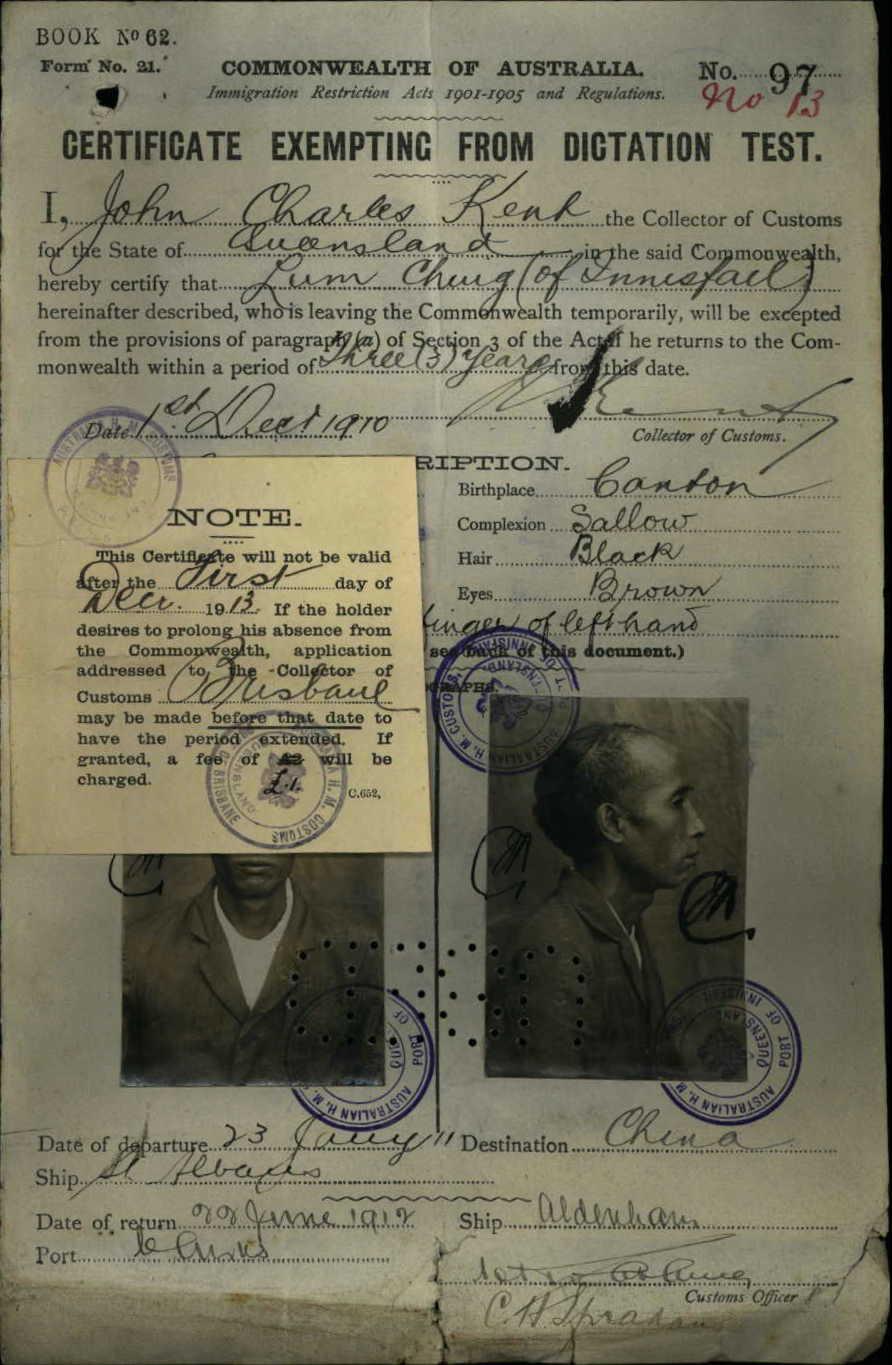 BOOK No 62.
Form No. 21.
COMMONWEALTH OF AUSTRALIA.
No. 97
Immigration Restriction Acts 1901-1905 and Regulations.
No 13
CERTIFICATE EXEMPTING FROM DICTATION TEST.
I, John Charles Kent the Collector of Customs
for the State of Queensland in the said Commonwealth,
hereby certify that Lum Ching (of Innisfail)
hereinafter described, who is leaving the Commonwealth temporarily, will be excepted
from the provisions of paragraph (a) of Section 3 of the Act if he returns to the Com-
monwealth within a period of Three (3) years from this date.
Date 1st Decr 1910
Collector of Customs.
RIPTION.
Birthplace Canton
Complexion Sallow
Hair Black
Eyes Brown
finger of left hand
see back of this document.)
OGRAPHS.
NOTE.
This Certificate will not be valid
after the First day of
Decr. 1913. If the holder
desires to prolong his absence from
the Commonwealth, application
addressed to the Collector of
Customs Brisbane
may be made before that date to
have the period extended. If
granted, a fee of £2 will be
£1.
charged.
C.652,
AUSTRALIAN H. M. CUSTOMS
QUEENSLAND
BRISBANE
AUSTRALIAN H. M. CUSTOMS, PORT OF INNISFAIL
QUEENSLAND
PORT OF
AUSTRALIAN H. M.
PORT OF INNISFAIL
QUEENSLAND
AUSTRALIAN H. M.
Date of departure 23 Jany 11
Destination China
Ship St Albans
Date of return 22 June 1912
Ship Aldenham
Port Cairns
Customs Officer